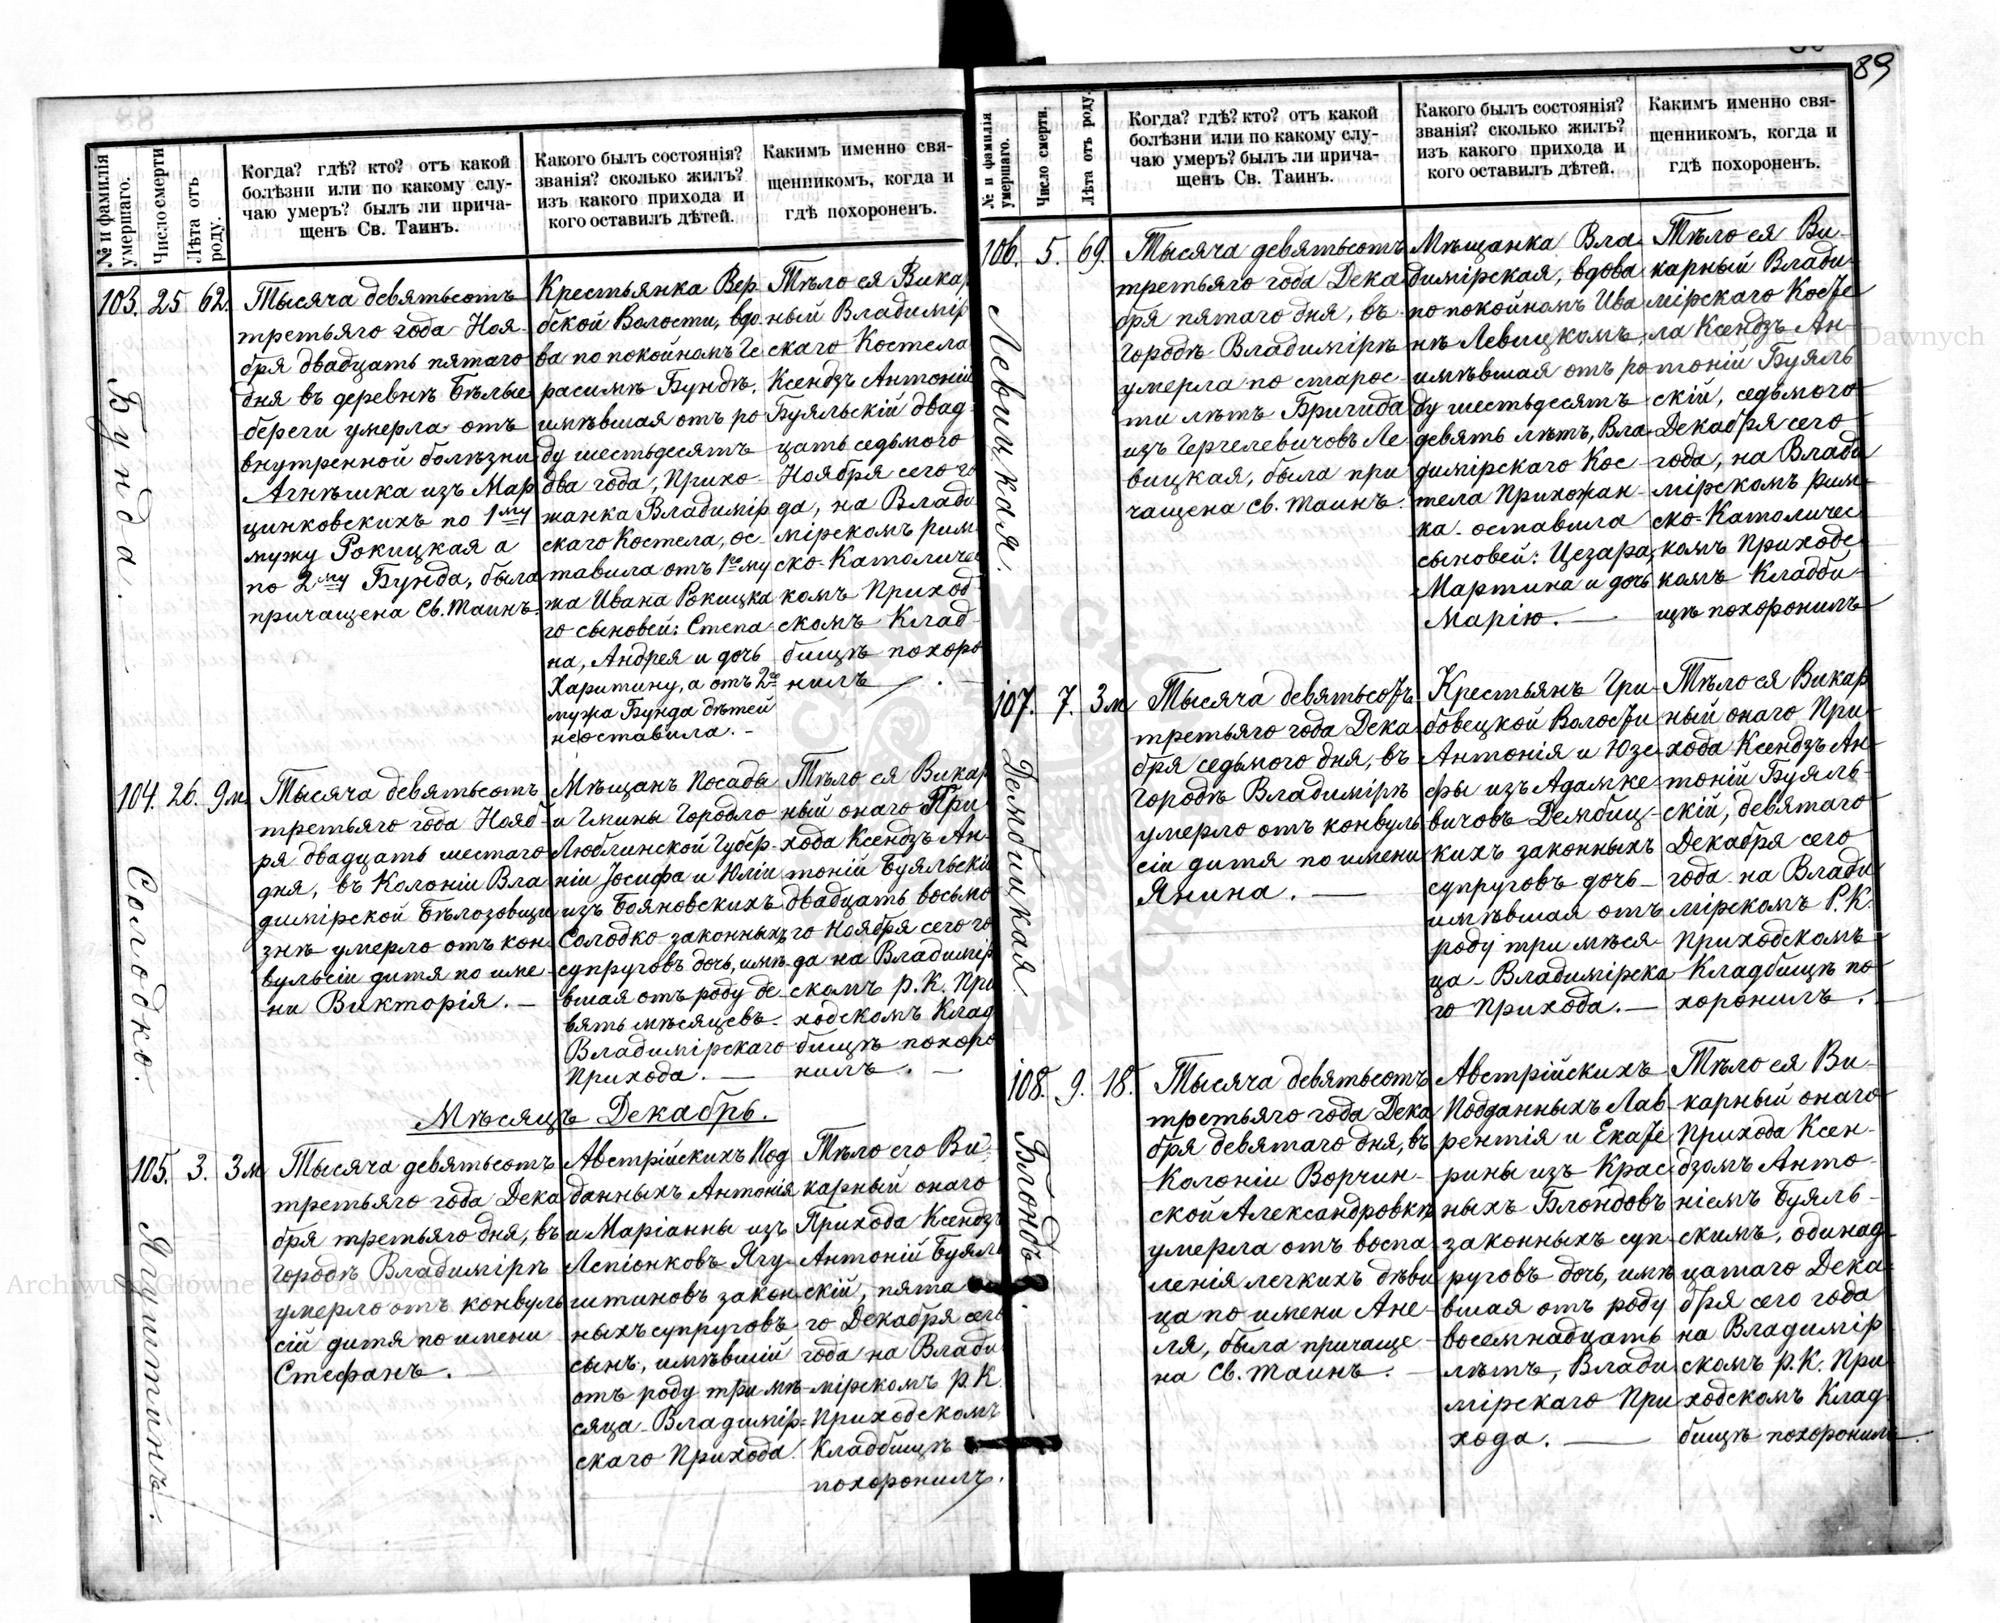 89
№ и фамилія умершаго.
Число смерти
Лѣта отъ роду.
Когда? гдѣ? кто? отъ какой
болѣзни или по какому слу-
чаю умеръ? былъ ли прича-
щенъ Св. Таинъ.
Какого былъ состоянія?
званія? сколько жилъ?
изъ какого прихода и
кого оставилъ дѣтей.
Какимъ именно свя-
щенникомъ, когда и
гдѣ похороненъ.
103. 25 62.
Бунда.
Тысяча девятьсотъ
третьяго года Ноя-
бря двадцать пятаго
дня въ деревнѣ Бѣлые
береги умерла отъ
внутренной болѣзни
Агнѣшка изъ Мар
цинковскихъ по 1му
мужу Рокицкая а
по 2му Бунда, была
причащена Св. Таинъ.
Крестьянка Вер
бской Волости, вдо
ва по покойномъ Ге
расимѣ Бундѣ,
имѣвшая отъ ро
ду шестьдесятъ
два года, Прихо-
жанка Владимір
скаго Костела, ос-
тавила отъ 1го му
жа Ивана Рокицка
го сыновей: Степа
на, Андрея и дочь
Харитину, а отъ 2го
мужа Бунда дѣтей
неоставила. -
Тѣло ея Викар
ный Владимір
скаго Костела
Ксендзъ Антоній
Буяльскій двад-
цать седьмого
Ноября сего го
да, на Влади
мірскомъ рим
ско-Католичес
комъ Приход
скомъ Клад-
бищѣ похоро
нилъ
104. 26. 9м.
Солодко.
Тысяча девятьсотъ
третьяго года Нояб-
ря двадцать шестаго
дня, въ Колоніи Вла
димірской Бѣлозовщи
знѣ умерло отъ кон
вульсіи дитя по име-
ни Викторія. —
Мѣщанъ Посады
и Гмины Городло
Люблинской Губер-
ніи Іосифа и Юліи
изъ Бояновскихъ
Солодко законныхъ
супруговъ дочь, имѣ-
вшая отъ роду де-
вять мѣсяцевъ.
Владимірскаго
Прихода. —
Тѣло ея Викар
ный онаго При
хода Ксендзъ Ан-
тоній Буяльскій
двадцать восьмо
го Ноября сего го
да на Владимір
скомъ р. К. При
ходскомъ Клад
бищѣ похоро
нилъ. —
Мѣсяцъ Декабрь.
105. 3. 3м
Ягуштинъ.
Тысяча девятьсотъ
третьяго года Дека
бря третьяго дня, въ
городѣ Владимірѣ
умерло отъ конвуль
сій дитя по имени
Стефанъ. —
Австрійскихъ Под
данныхъ Антонія
и Маріанны изъ
Лепіонковъ Ягу-
штиновъ закон-
ныхъ супруговъ
сынъ, имѣвшій
отъ роду три мѣ-
сяца Владимір=
скаго Прихода.
Тѣло его Ви-
карный онаго
Прихода Ксендзъ
Антоній Буяль
скій, пята
го Декабря сего
года на Влади
мірскомъ р. К.
Приходскомъ
Кладбищѣ
похоронилъ.
№ и фамилія умершаго.
Число смерти.
Лѣта отъ роду.
Когда? гдѣ? кто? отъ какой
болѣзни или по какому слу-
чаю умеръ? былъ ли прича-
щенъ Св. Таинъ.
Какого былъ состоянія?
званія? сколько жилъ?
изъ какого прихода и
кого оставилъ дѣтей.
Какимъ именно свя-
щенникомъ, когда и
гдѣ похороненъ.
106. 5. 69.
Левицкая.
Тысяча девятьсотъ
третьяго года Дека
бря пятаго дня, въ
городѣ Владимірѣ
умерла по старос-
ти лѣтъ Бригида
изъ Гергелевичовъ Ле
вицкая, была при
чащена Св. Таинъ.
Мѣщанка Вла
димірская, вдова
по покойномъ Ива
нѣ Левицкомъ,
имѣвшая отъ ро
ду шестьдесятъ
девять лѣтъ, Вла
димірскаго Кос-
тела Прихожан-
ка. оставила
сыновей: Цезара,
Мартина и дочь
Марію. —
Тѣло ея Ви-
карный Влади-
мірскаго Косте
ла Ксендзъ Ан-
тоній Буяль
скій, седьмого
Декабря сего
года, на Влади
мірскомъ рим-
ско-Католичес
комъ Приходс
комъ Кладби-
щѣ похоронилъ
107. 7. 3м
Дембицкая.
Тысяча девятьсотъ
третьяго года Дека
бря седьмого дня, въ
городѣ Владимірѣ
умерло отъ конвуль
сіи дитя по имени
Янина. —
Крестьянъ Гри-
бовецкой Волости
Антонія и Юзе-
фы изъ Адамке
вичовъ Дембиц-
кихъ законныхъ
супруговъ дочь
имѣвшая отъ
роду три мѣся-
ца. Владимірска
го Прихода. —
Тѣло ея Викар
ный онаго При-
хода Ксендзъ Ан-
тоній Буяль-
скій, девятаго
Декабря сего
года на Влади
мірскомъ Р. К.
Приходскомъ
Кладбищѣ по-
хоронилъ.
108. 9. 18.
Блондъ.
Тысяча девятьсотъ
третьяго года Дека
бря девятаго дня, въ
Колоніи Ворчин-
ской Александровкѣ
умерла отъ воспа
ленія легкихъ дѣви
ца по имени Ане-
ля, была причаще
на Св. Таинъ. —
Австрійскихъ
Подданныхъ Лав-
рентія и Екате
рины изъ Крас
ныхъ Блондовъ
законныхъ суп-
руговъ дочь, имѣ
вшая отъ роду
восемнадцать
лѣтъ, Влади
мірскаго При
хода. —
Тѣло ея Ви-
карный онаго
Прихода Ксен-
дзомъ Анто-
ніемъ Буяль-
скимъ, одинад-
цатаго Дека-
бря сего года
на Владимір
скомъ р. К. При
ходскомъ Клад-
бищѣ похоронилъ.
Archiwum Główne Akt Dawnych